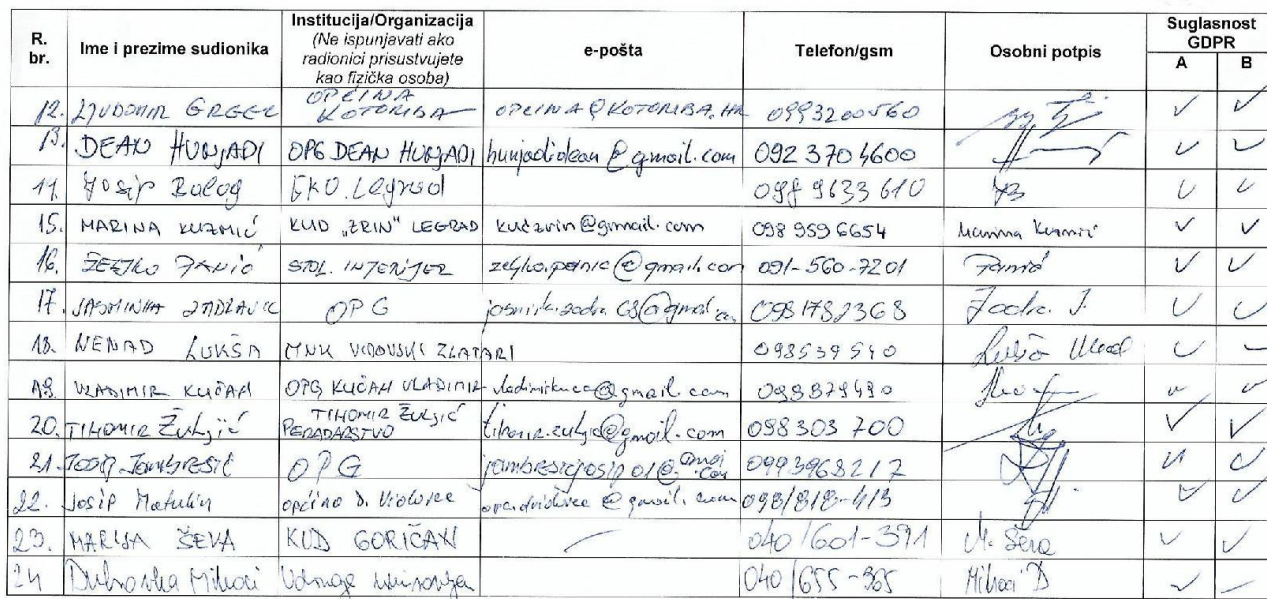 R. br. Ime i prezime sudionika Institucija/Organizacija (Ne ispunjavati ako radionici prisustvujete kao fizička osoba) e-pošta Telefon/gsm Osobni potpis Suglasnost GDPR A B
12. LJUDOMIR GREGEC OPĆINA KOTORIBA OPCINA@KOTORIBA.HR 0993200560
13. DEAN HUNJADI OPG DEAN HUNJADI hunjadidean@gmail.com 092 370 4600
14. Josip Balog Legrad 098 9633 610
15. MARINA KUZMIĆ KUD "ZRIN" LEGRAD kudzrin@gmail.com 098 959 6654 Marina Kuzmić
16. ŽELJKO PANIĆ STOL. INTERIJER zeljko.panic@gmail.com 091-560-7201 Panić
17. JASMINKA OPG 0981782368 J.
18. NENAD LUKŠA MNK VIDOVSKI ZLATARI 098539540
19. VLADIMIR KUČAN OPG KUČAN VLADIMIR 098879490
20. TIHOMIR Žuljić TIHOMIR ŽULJIĆ PERADARSTVO tihomir.zuljic@gmail.com 098 303 700
21. Josip Jambrešić OPG jambresicjosip01@gmail.com 0993968217
22. Josip Matulin općina D. Vidovec 098/818-413
23. MARIJA ŠEVA KUD GORIČAN 040/601-391 M. Ševa
24 Dubravka Mihoci Udruga umirovlj. 040/655-365 Mihoci D